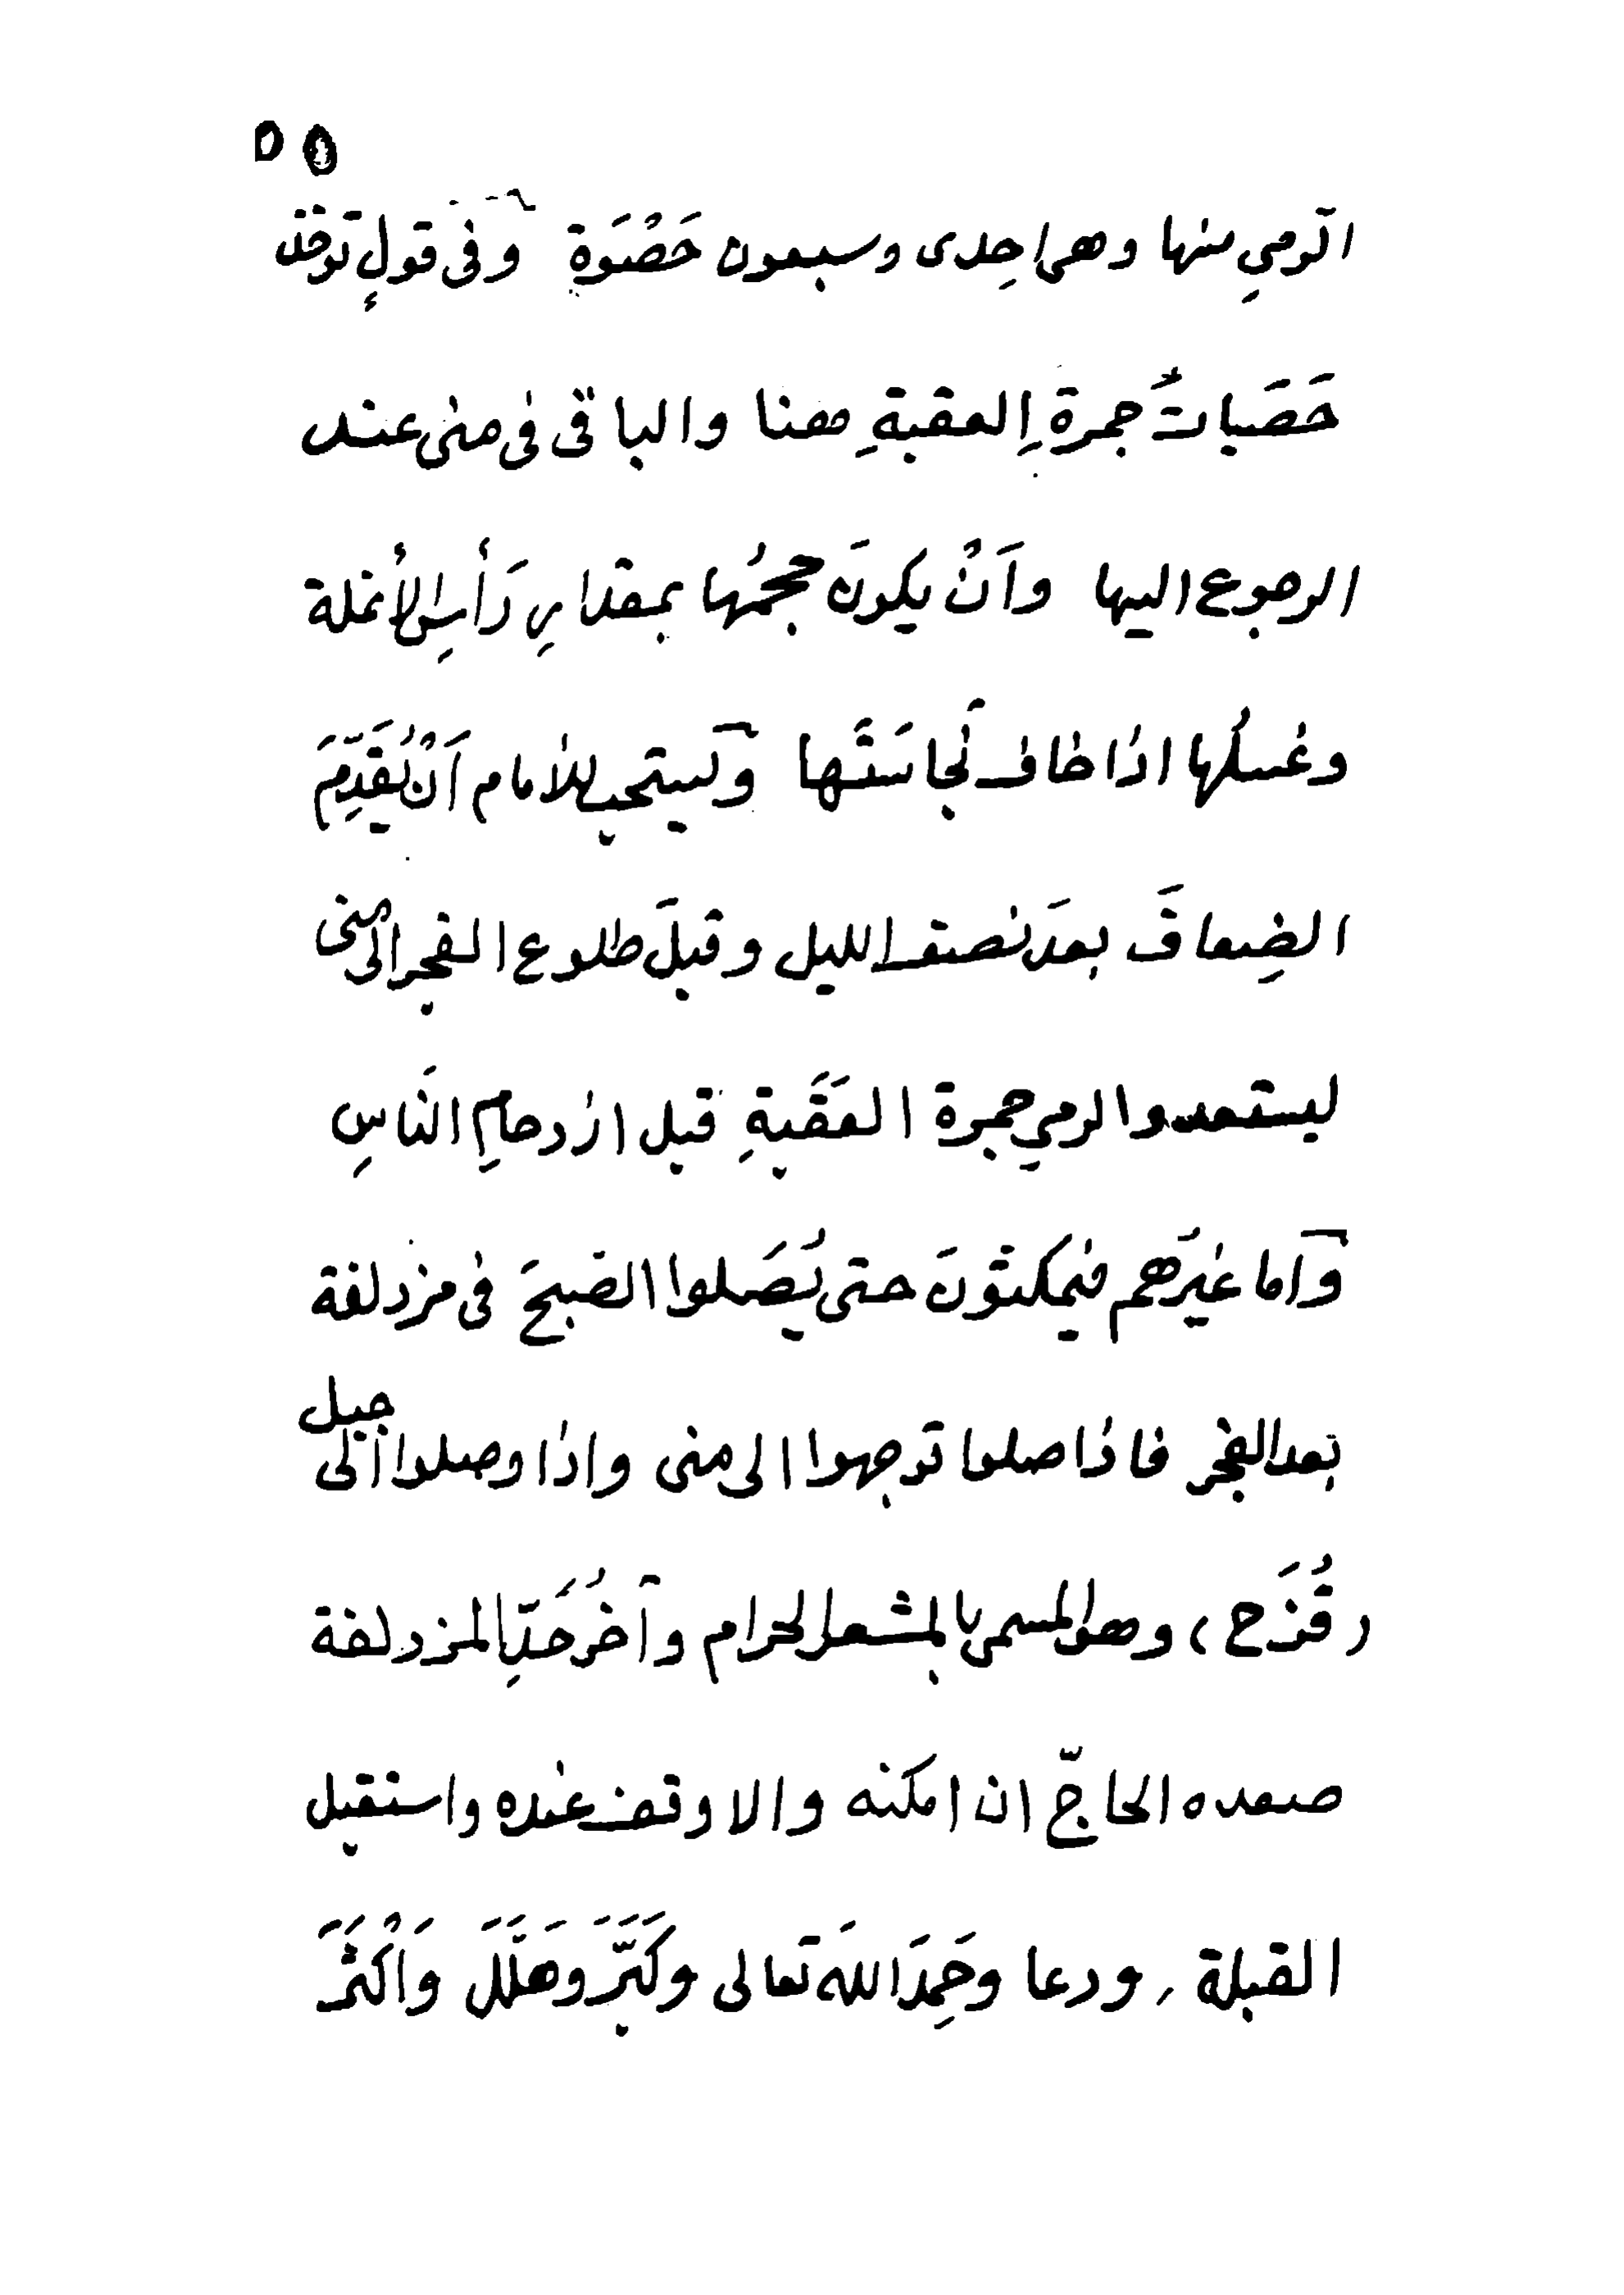 ٥٥
الرمي منها وهى احِدى وسبعون حَصْوَةٍ وفى قولٍ تؤخذ
حَصَياتُ جمرةِ العقبةِ مهنا والباقى فى منى عند
الرجوع اليها وَاَنْ يكونَ حجمُها بمقدارِ رَأْسِ الأنملة
وغسلُها اذا خاف نجاسَتَها وَيستحب للامام اَنْ يُقَدِّمَ
الضِعافَ بعدَ نصف الليل وقبلَ طلوع الفجر الى منى
ليستعدوا لرمي جمرة العَقَبةِ قبل ازدحامِ الناسِ
وَاما غيرُهم فيمكثونَ حتى يُصَلوا الصبحَ فى مزدلفة
بعد الفجر فاذا صلوا توجهوا الى منى واذا وصلوا الى جبل
(قُزَح) وهو المسمى بالمشعر الحرام وآخرُ حَدِّ المزدلفة
صعده الحاجّ ان امكنه والا وقف عنده واستقبل
القبلة، ودعا وحَمِدَ اللهَ تعالى وكَبَّرَ وهَلَّلَ وَاَكْثَرَ